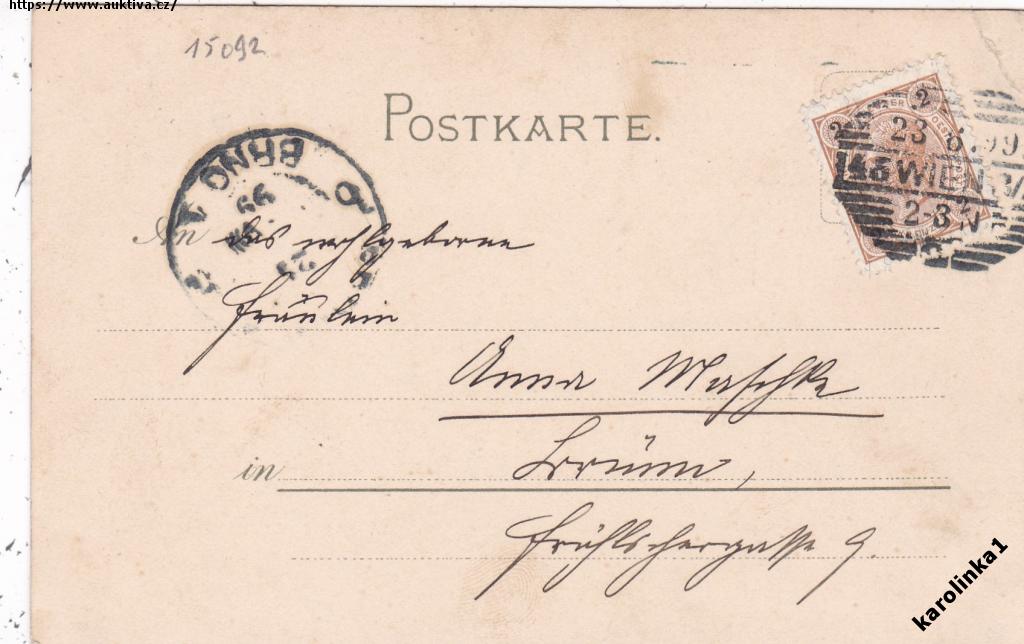 https://www.auktiva.cz/
15092
POSTKARTE.
2 2
23 6.99
WIEN
2-3 N
BRNO
99
An das wohlgeborene
Fräulein
Anna Maschke
in Brünn,
9.
karolinka1